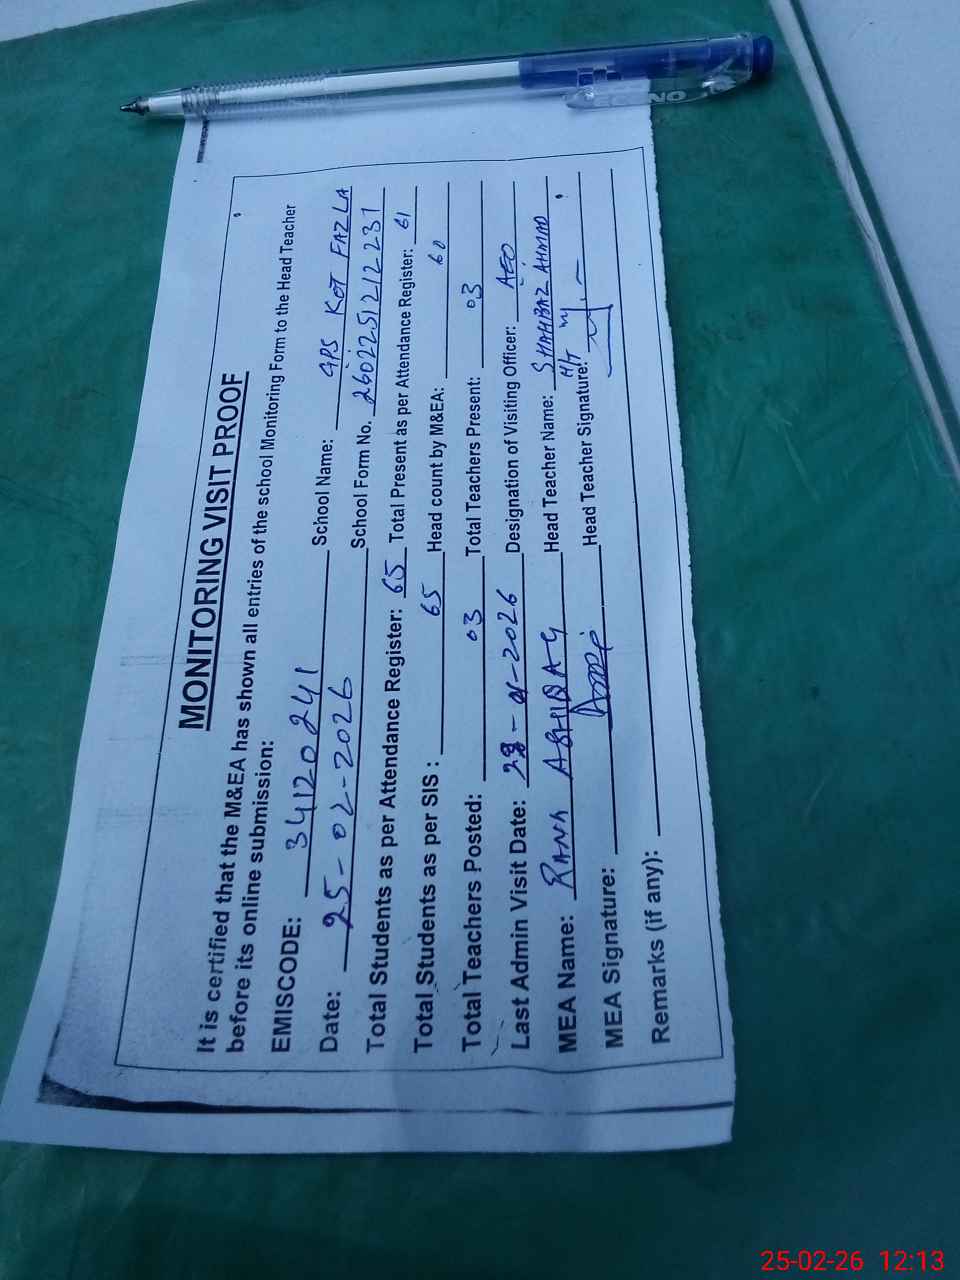 MONITORING VISIT PROOF
It is certified that the M&EA has shown all entries of the school Monitoring Form to the Head Teacher
before its online submission:
EMISCODE: 34120241 School Name: GPS KOT FAZLA
Date: 25-02-2026 School Form No. 26022251212231
Total Students as per Attendance Register: 65 Total Present as per Attendance Register: 61
Total Students as per SIS : 65 Head count by M&EA: 60
Total Teachers Posted: 03 Total Teachers Present: 03
Last Admin Visit Date: -01-2026 Designation of Visiting Officer: AEO
MEA Name: RANA ASHFAQ Head Teacher Name: SHAHBAZ AHMAD
H/T
MEA Signature: Head Teacher Signature:
Remarks (if any):
25-02-26 12:13